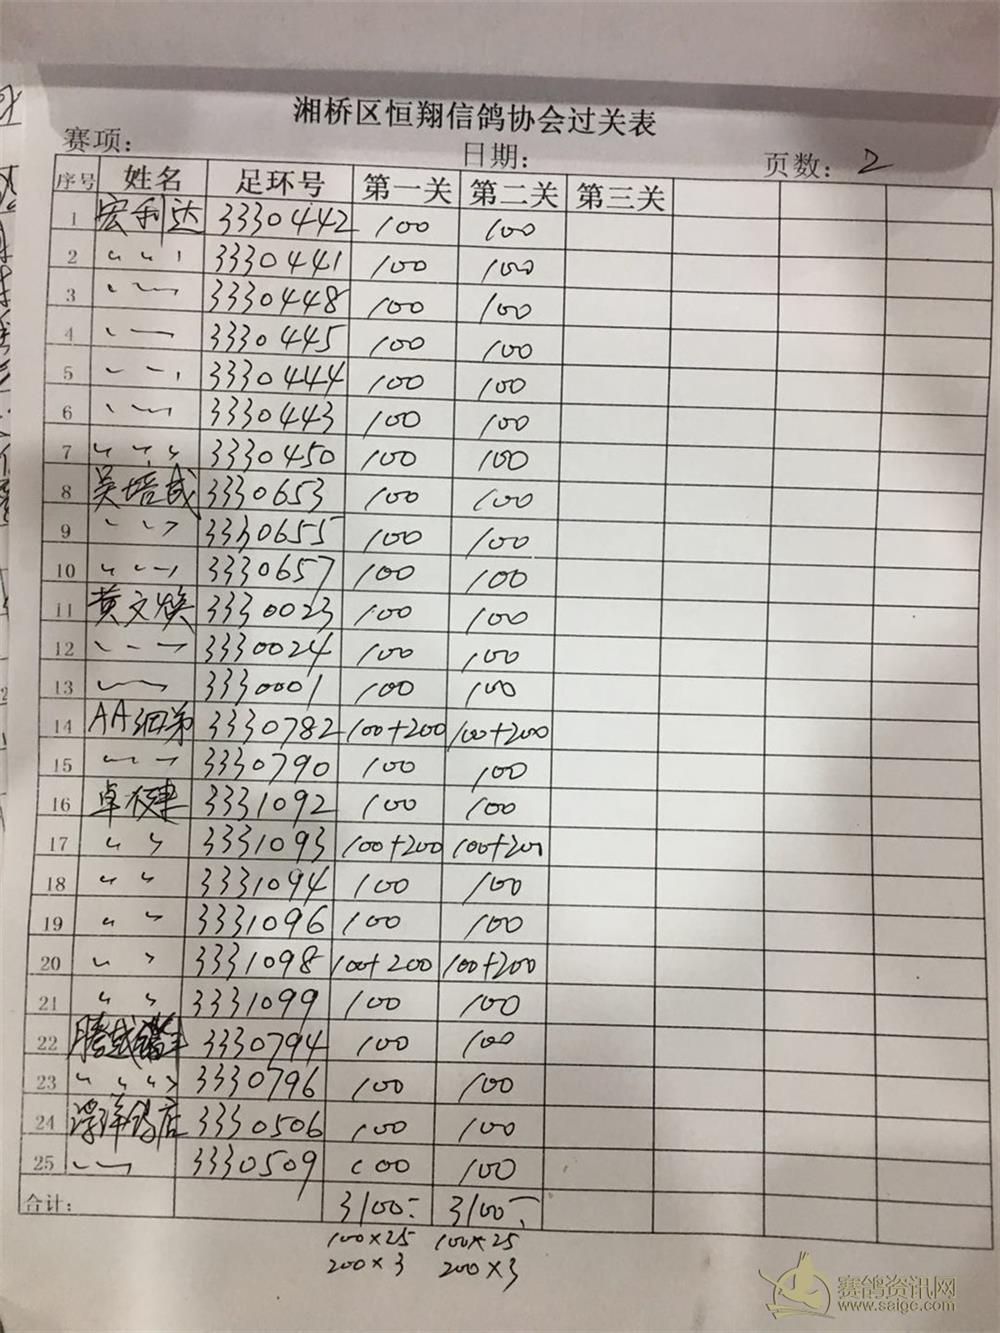 湘桥区恒翔信鸽协会过关表
赛项: 日期: 页数: 2
序号 姓名 足环号 第一关 第二关 第三关
1 宏利达 3330442 100 100
2 3330441 100 100
3 3330448 100 100
4 3330445 100 100
5 3330444 100 100
6 3330443 100 100
7 3330450 100 100
8 吴培成 3330653 100 100
9 3330655 100 100
10 3330657 100 100
11 黄文焕 3330023 100 100
12 3330024 100 100
13 3330001 100 100
14 AA细弟 3330782 100+200 100+200
15 3330790 100 100
16 卓 3331092 100 100
17 3331093 100+200 100+200
18 3331094 100 100
19 3331096 100 100
20 3331098 100+200 100+200
21 3331099 100 100
22 3330794 100 100
23 3330796 100 100
24 浮洋鸽店 3330506 100 100
25 3330509 100 100
合计: 3100 3100
100×25 100×25
200×3 200×3
赛鸽资讯网
www.saigc.com